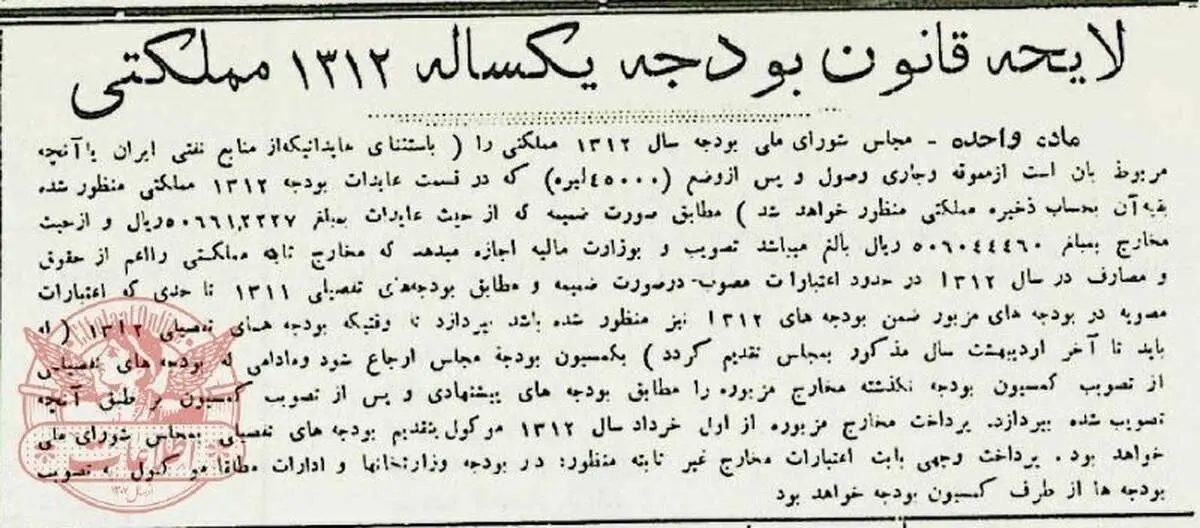 لایحه قانون بودجه یکساله ۱۳۱۲ مملکتی
ماده واحده - مجلس شورای ملی بودجه سال ۱۳۱۲ مملکتی را ( باستثنای عایداتیکه از منابع نفتی ایران یا آنچه
مربوط بان است ازمعوقه وجاری وصول و پس ازوضع (۴۵۰۰۰۰لیره) که در قسمت عایدات بودجه ۱۳۱۲ مملکتی منظور شده
بقیه آن بحساب ذخیره مملکتی منظور خواهد شد ) مطابق صورت ضمیمه که از حیث عایدات بمبلغ ۵۰۶۶۱٫۲۲۲۷ریال و ازحیث
مخارج بمبلغ ۵۰۶۰۴۴۴۶۰ ریال بالغ میباشد تصویب و بوزارت مالیه اجازه میدهد که مخارج ثابته مملکتی رااعم از حقوق
و مصارف در سال ۱۳۱۲ در حدود اعتبارات مصوب درصورت ضمیمه و مطابق بودجه‌های تفصیلی ۱۳۱۱ تا حدی که اعتبارات
مصوبه در بودجه های مزبور ضمن بودجه های ۱۳۱۲ نیز منظور شده باشد بپردازد تا وقتیکه بودجه های تفصیلی ۱۳۱۲ ( که
باید تا آخر اردیبهشت سال مذکور بمجلس تقدیم گردد ) بکمسیون بودجهٔ مجلس ارجاع شود ومادامی که بودجه های تفصیلی
از تصویب کمسیون بودجه نگذشته مخارج مزبوره را مطابق بودجه های پیشنهادی و پس از تصویب کمسیون بر طبق آنچه
تصویب شده بپردازد. پرداخت مخارج مزبوره از اول خرداد سال ۱۳۱۲ موکول بتقدیم بودجه های تفصیلی بمجلس شورای ملی
خواهد بود . پرداخت وجهی بابت اعتبارات مخارج غیر ثابته منظور: در بودجه وزارتخانها و ادارات مطلقا موکول به تصویب
بودجه ها از طرف کمسیون بودجه خواهد بود
Ettelaat Online
اطلاعات